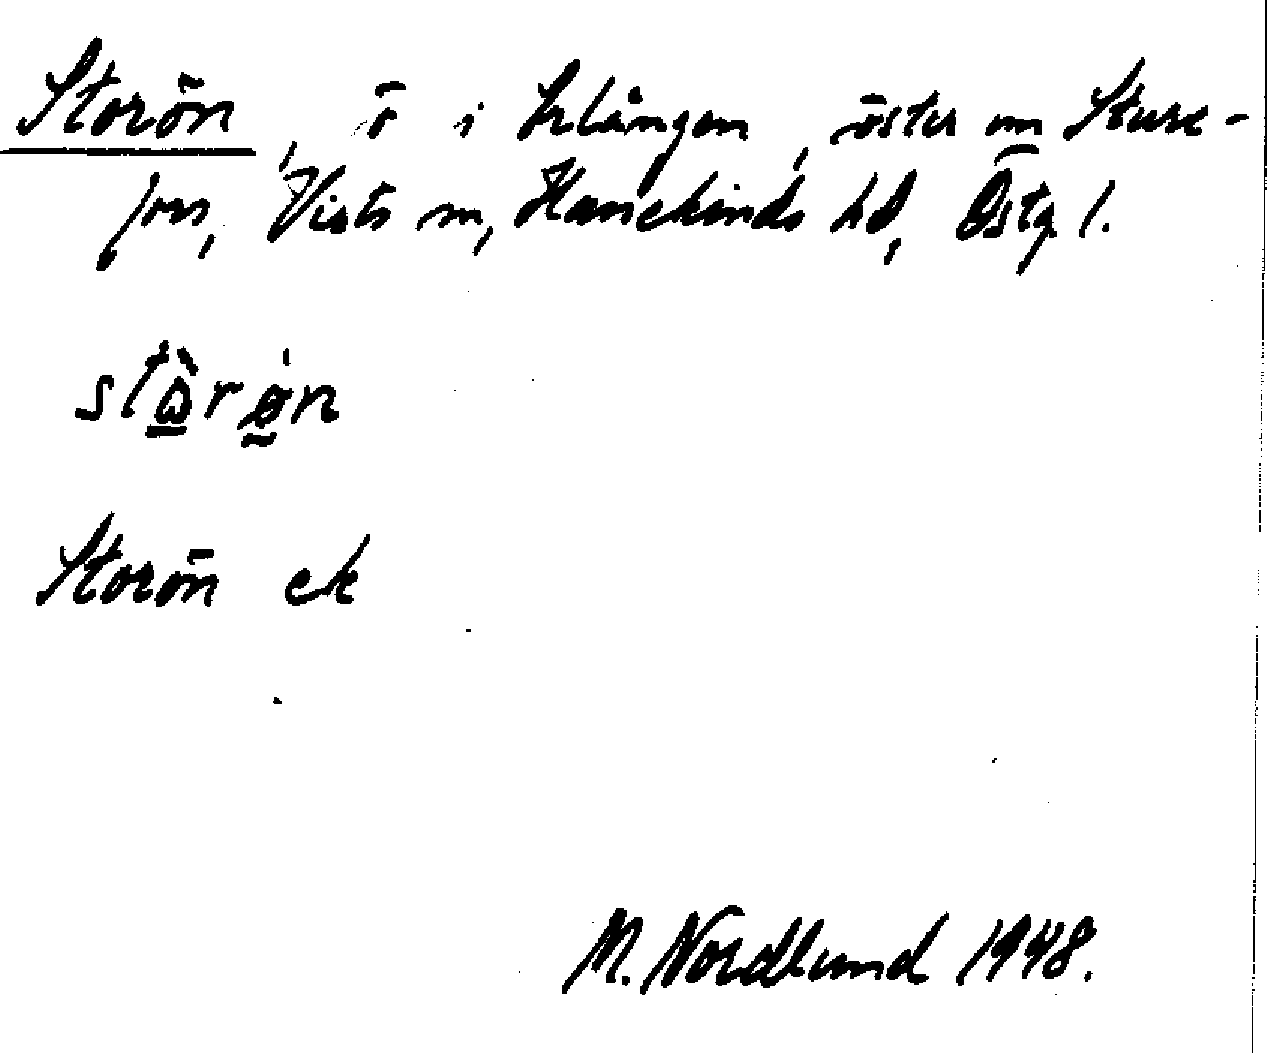 Storön, ö i Erlången, öster om Sture-
fors, Vists sn, Hanekinds hd, Östg l.
stò̱rø̱n
Storön ek
M. Nordlund 1948.